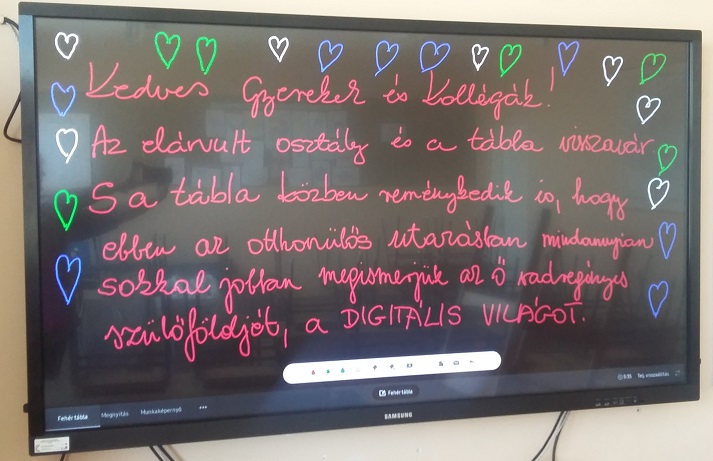 Kedves Gyerekek és Kollégák!
Az elárvult osztály és a tábla visszavár
S a tábla közben reménykedik is, hogy
ebben az otthonülős utazásban mindannyian
sokkal jobban megismerjük az ő vadregényes
szülőföldjét, a DIGITÁLIS VILÁGOT.
Fehér tábla
Fehér tábla Megnyitás Munkaképernyő
SAMSUNG